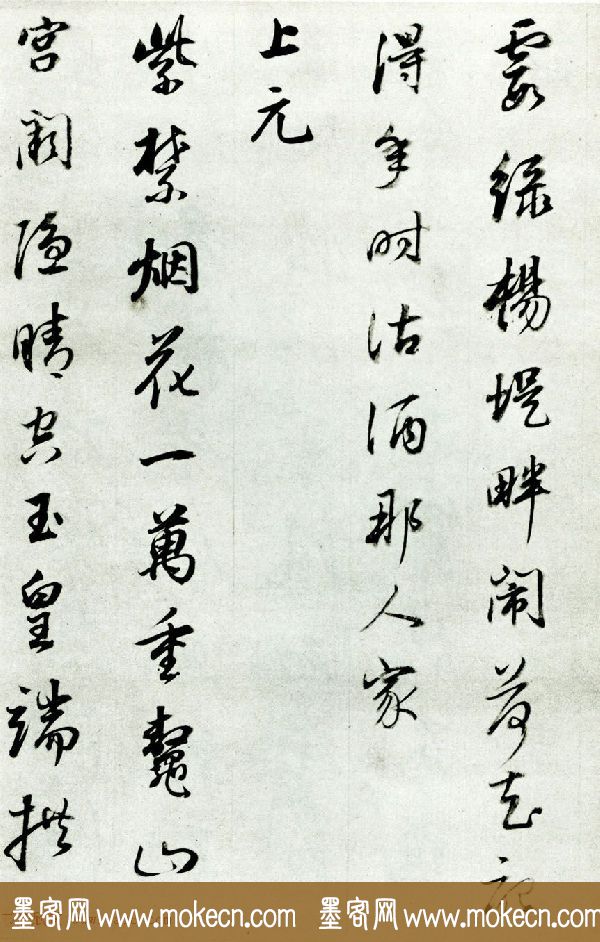 霞绿楊堤畔闹荷花記
得年时沽酒那人家
上元
紫禁烟花一萬重鼇山
宫阙隐晴空玉皇端拱
墨客网 www.mokecn.com 墨客网 www.mokecn.com